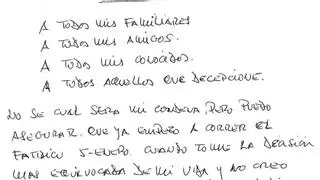 A TODOS MIS FAMILIARES
A TODOS MIS AMIGOS.
A TODOS MIS CONOCIDOS.
A TODOS AQUELLOS QUE DECEPCIONE.
NO SE CUAL SERA MI CONDENA, PERO PUEDO
ASEGURAR QUE YA EMPEZO A CORRER EL
FATIDICO 5-ENERO. CUANDO TOME LA DECISION
MAS EQUIVOCADA DE MI VIDA Y NO CREO